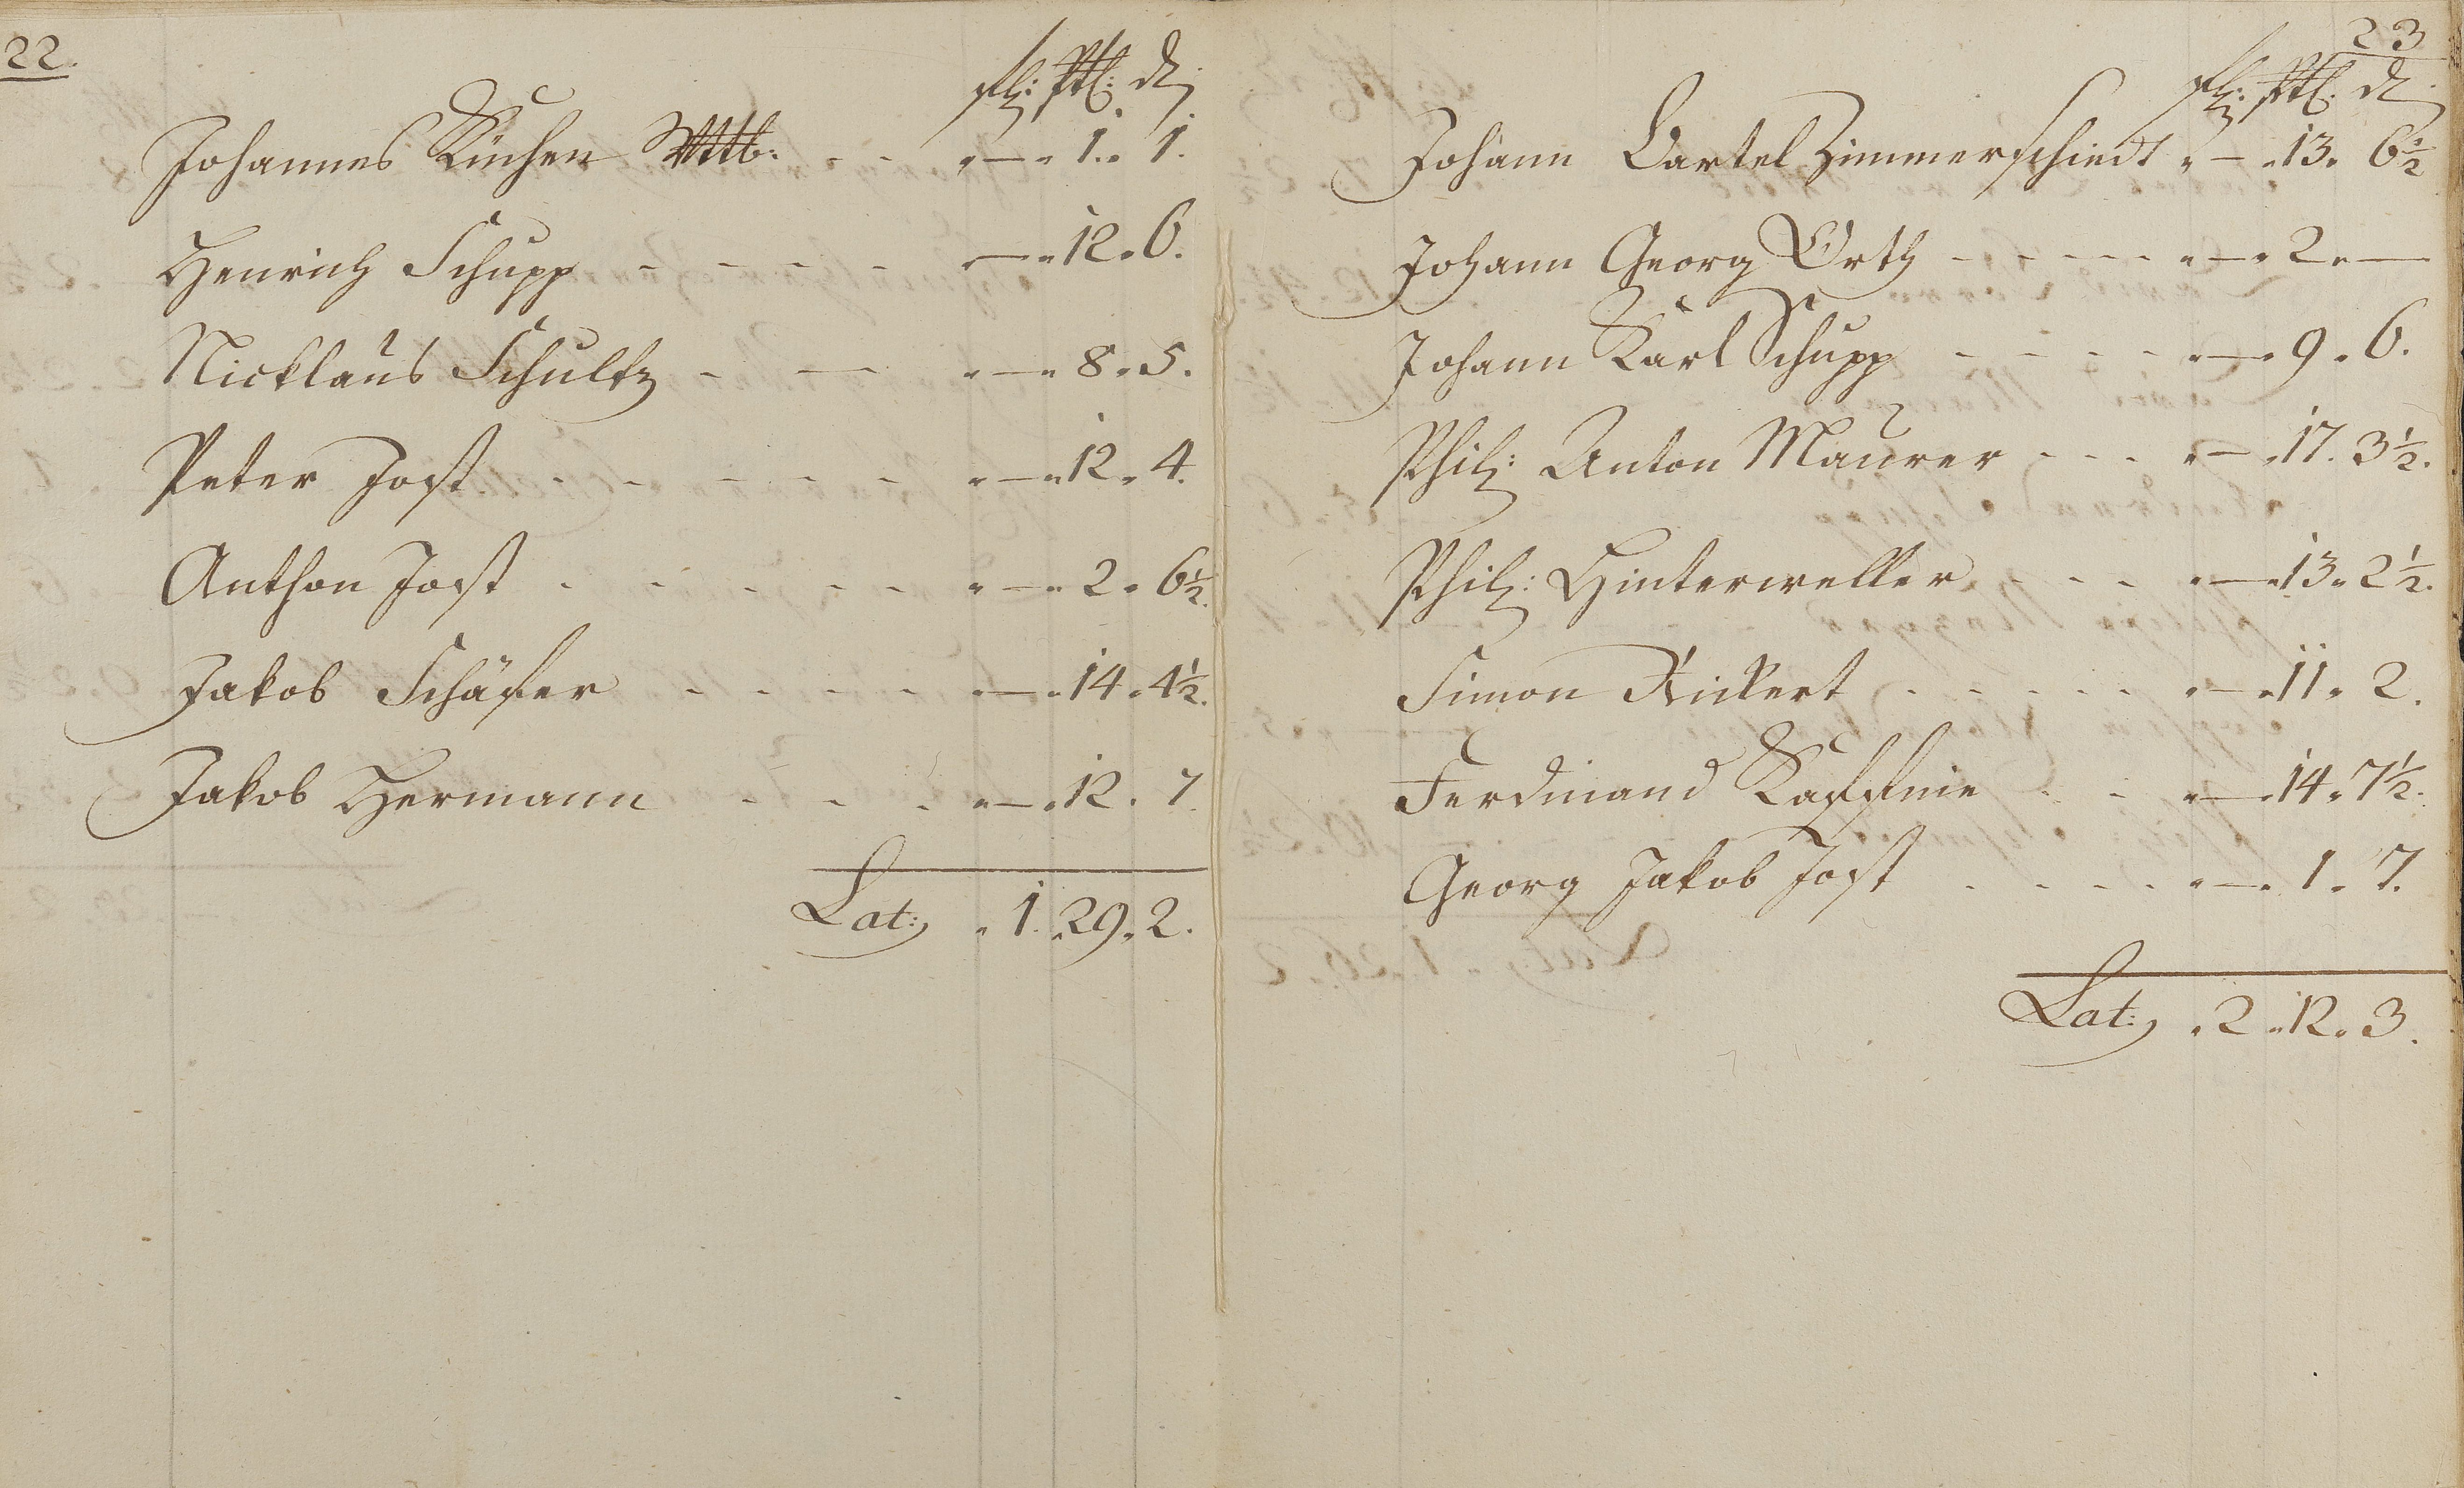 22.
fl: d:
Johannes Küchen Wttb: - - " — " 1. " 1.
Henrich Schupp - - - - " — " 12 " 6.
Nicklaus Schultz - — " — " 8 " 5.
Peter Jost - - - - - " — " 12 " 4.
Anthon Jost - - - - - " — " 2 " 6½.
Jakob Schäfer - - - - " — " 14 " 4½.
Jakob Hermann - - - " — " 12 . 7.
Lat: " 1. " 29 " 2.
23
fl: d:
Johann Bartel Zimmerschiedt " — " 13 " 6½
Johann Georg Orth - - - - - " — " 2 " —
Johann Karl Schupp - - - - " — " 9 " 6.
Phil: Anton Maurer - - - " — " 17. 3½.
Phil: Hinterweller - - - " — " 13 " 2½.
Simon Rickert - - - - - " — " 11 " 2.
Ferdinand - - " — " 14 " 7½.
Georg Jakob Jost - - - - " — " 1 " 7.
Lat: " 2 " 12 " 3.